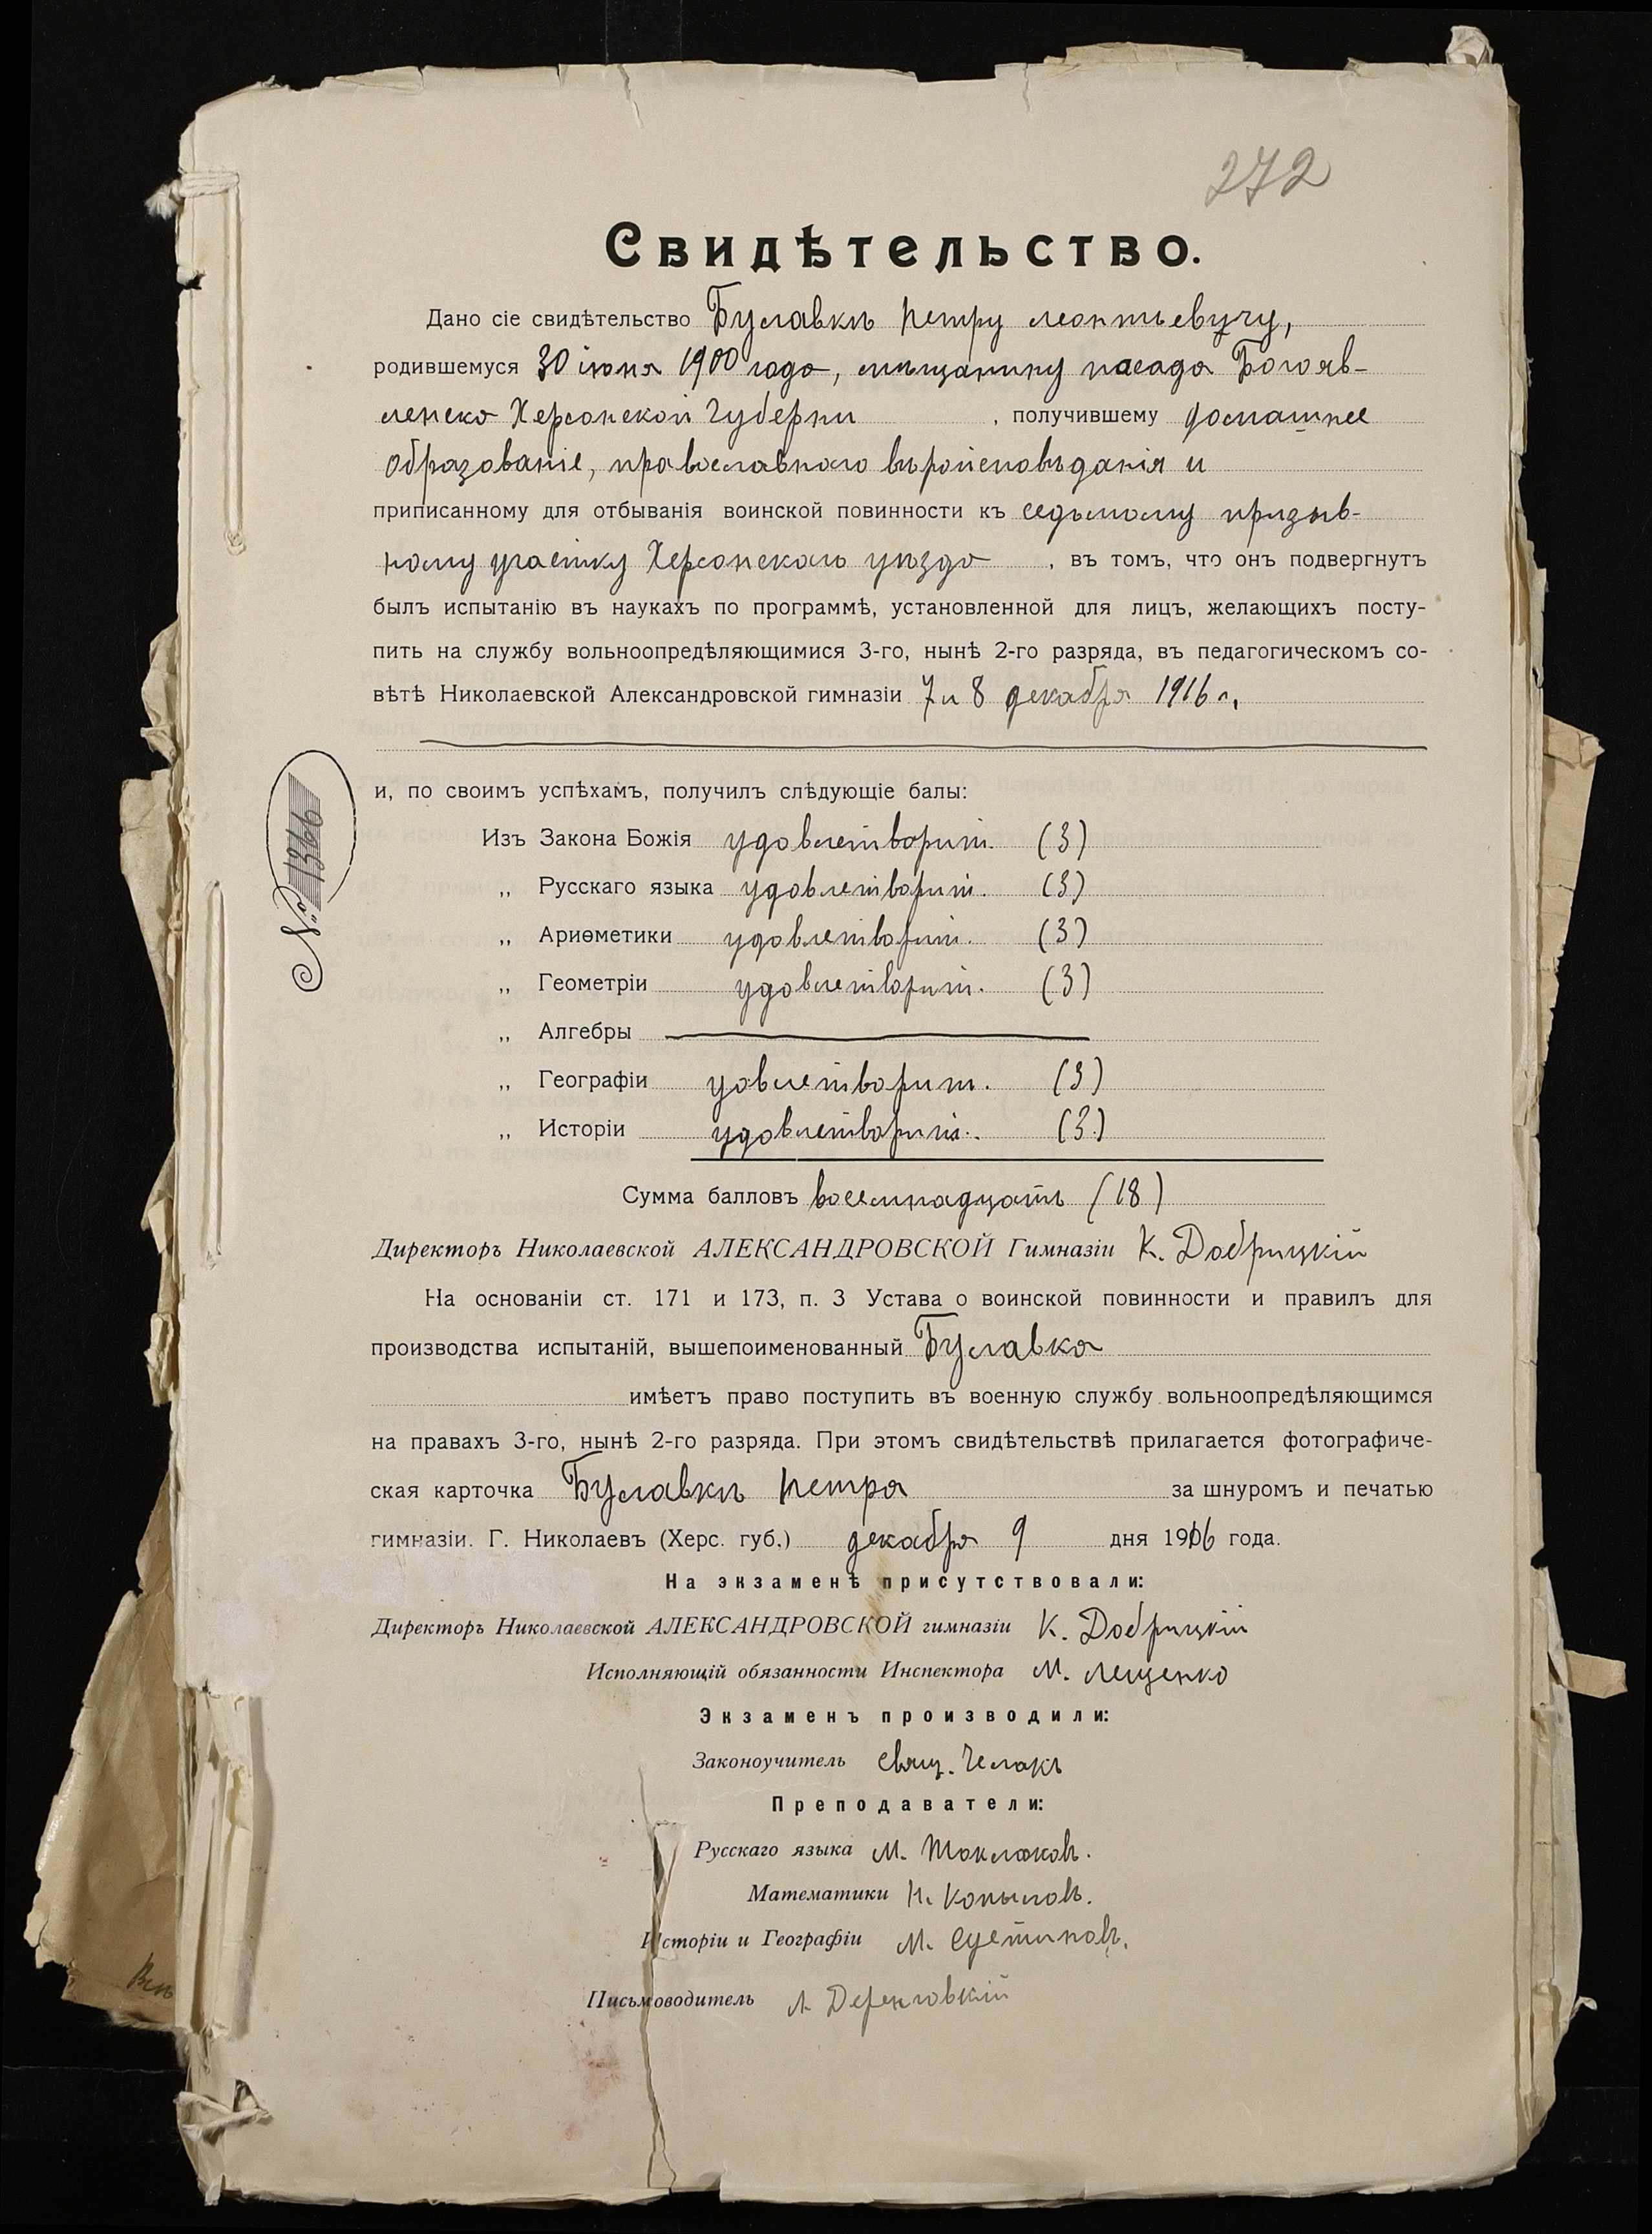 272
Свидѣтельство.
Дано сіе свидѣтельство Булавкѣ Петру Леонтьевучу,
родившемуся 30 іюня 1900 года, мѣщанину посада Богояв-
ленска Херсонской Губерни , получившему домашнее
образованіе, православнаго вѣроисповѣданія и
приписанному для отбыванія воинской повинности къ седьмому призыв-
ному участку Херсонскаго уѣзда , въ томъ, что онъ подвергнутъ
былъ испытанію въ наукахъ по программѣ, установленной для лицъ, желающихъ посту-
пить на службу вольноопредѣляющимися 3-го, нынѣ 2-го разряда, въ педагогическомъ со-
вѣтѣ Николаевской Александровской гимназіи 7 и 8 декабря 1916 г.,
и, по своимъ успѣхамъ, получилъ слѣдующіе балы:
№ 1366
Изъ Закона Божія удовлетворит. (3)
„ Русскаго языка удовлетворит. (3)
„ Ариѳметики удовлетворит. (3)
„ Геометріи удовлетворит. (3)
„ Алгебры
„ Географіи уовлетворит. (3)
„ Исторіи удовлетворит. (3)
Сумма балловъ восемнадцать (18)
Директоръ Николаевской АЛЕКСАНДРОВСКОЙ Гимназіи К. Добрицкій
На основаніи ст. 171 и 173, п. 3 Устава о воинской повинности и правилъ для
производства испытаній, вышепоименованный Булавка
имѣетъ право поступить въ военную службу вольноопредѣляющимся
на правахъ 3-го, нынѣ 2-го разряда. При этомъ свидѣтельствѣ прилагается фотографиче-
ская карточка Булавкѣ Петра за шнуромъ и печатью
гимназіи. Г. Николаевъ (Херс. губ.) декабря 9 дня 1916 года.
На экзаменѣ присутствовали:
Директоръ Николаевской АЛЕКСАНДРОВСКОЙ гимназіи К. Добрицкій
Исполняющій обязанности Инспектора М. Лещенко
Экзаменъ производили:
Законоучитель свящ. Челакъ
Преподаватели:
Русскаго языка М. Токлаковъ.
Математики Н. Копыловъ.
Исторіи и Географіи М. Сустиновъ.
Письмоводитель Деренговскій